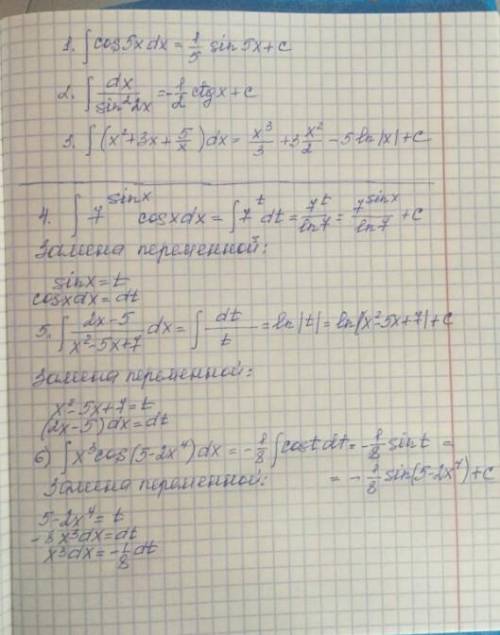 1. ∫ cos5x dx = 1/5 sin 5x + c
2. ∫ dx/sin²2x = -1/2 ctgx + c
3. ∫ (x² + 3x + 5/x) dx = x³/3 + 3 x²/2 - 5 ln|x| + C
4. ∫ 7^sinx cosx dx = ∫ 7^t dt = 7^t/ln7 = 7^sinx/ln7 + C
Замена переменной:
sinx = t
cosx dx = dt
5. ∫ (2x-5)/(x²-5x+7) dx = ∫ dt/t = ln|t| = ln|x²-5x+7| + C
Замена переменной:
x²-5x+7 = t
(2x-5) dx = dt
6) ∫ x³cos(5-2x⁴) dx = -1/8 ∫ cost dt = -1/8 sin t =
= -1/8 sin(5-2x⁴) + C
Замена переменной:
5-2x⁴ = t
-8x³dx = dt
x³dx = -1/8 dt